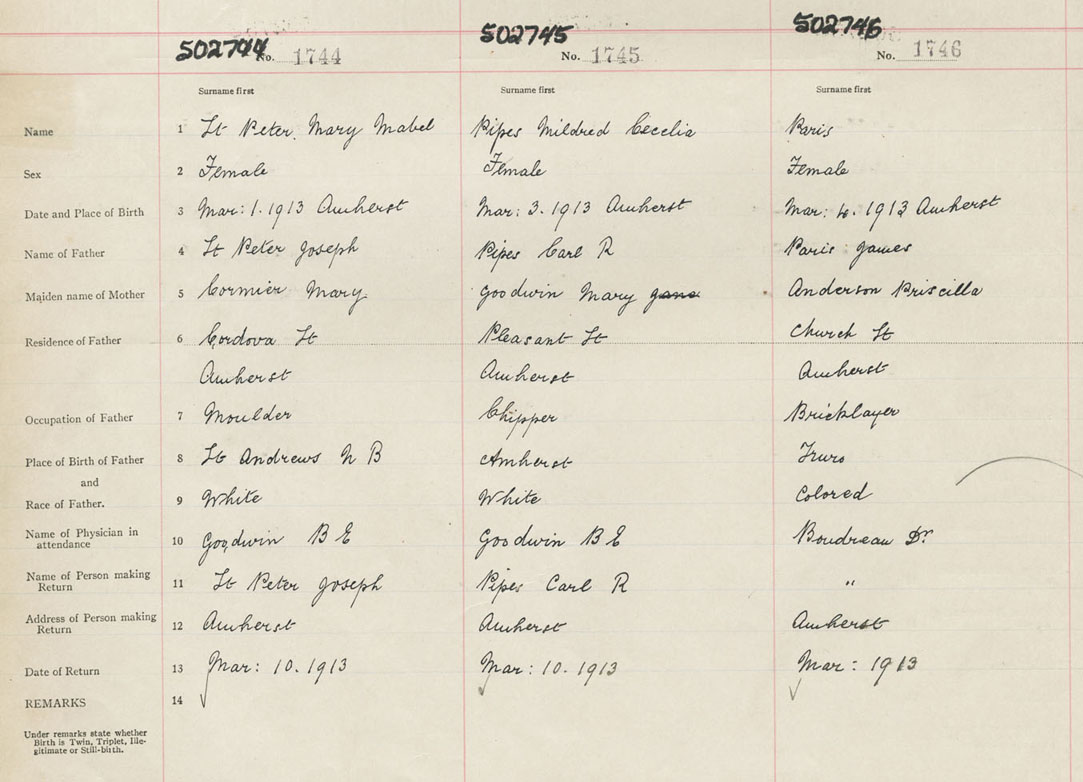 502744 502745 502746
No. 1744 No. 1745 No. 1746
Surname first Surname first Surname first
Name 1 St Peter, Mary Mabel Pipes Mildred Cecelia Paris
Sex 2 Female Female Female
Date and Place of Birth 3 Mar: 1. 1913 Amherst Mar: 3. 1913 Amherst Mar: 4. 1913 Amherst
Name of Father 4 St Peter Joseph Pipes Carl R Paris James
Maiden name of Mother 5 Cormier Mary Goodwin Mary Jane Anderson Priscilla
Residence of Father 6 Cordova St Pleasant St Church St
Amherst Amherst Amherst
Occupation of Father 7 Moulder Chipper Bricklayer
Place of Birth of Father 8 St Andrews N B Amherst Truro
and
Race of Father. 9 White White Colored
Name of Physician in
attendance 10 Goodwin B E Goodwin B E Boudreau Dr
Name of Person making
Return 11 St Peter Joseph Pipes Carl R "
Address of Person making
Return 12 Amherst Amherst Amherst
Date of Return 13 Mar: 10. 1913 Mar: 10. 1913 Mar: 1913
REMARKS 14
Under remarks state whether
Birth is Twin, Triplet, Ille-
gitimate or Still-birth.